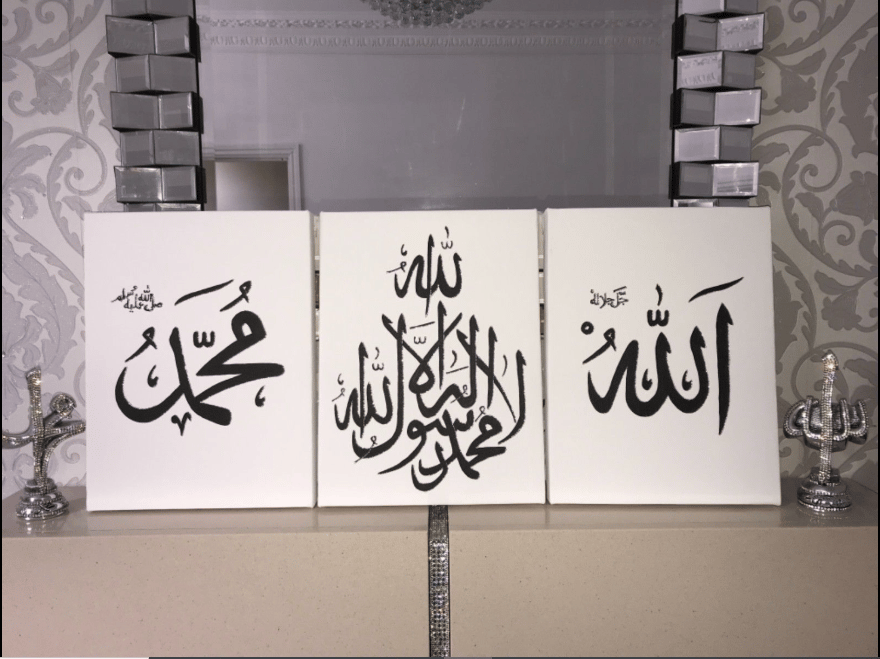 الله
جل جلاله
لا إله إلا الله
محمد رسول الله
محمد
صلى الله عليه وسلم